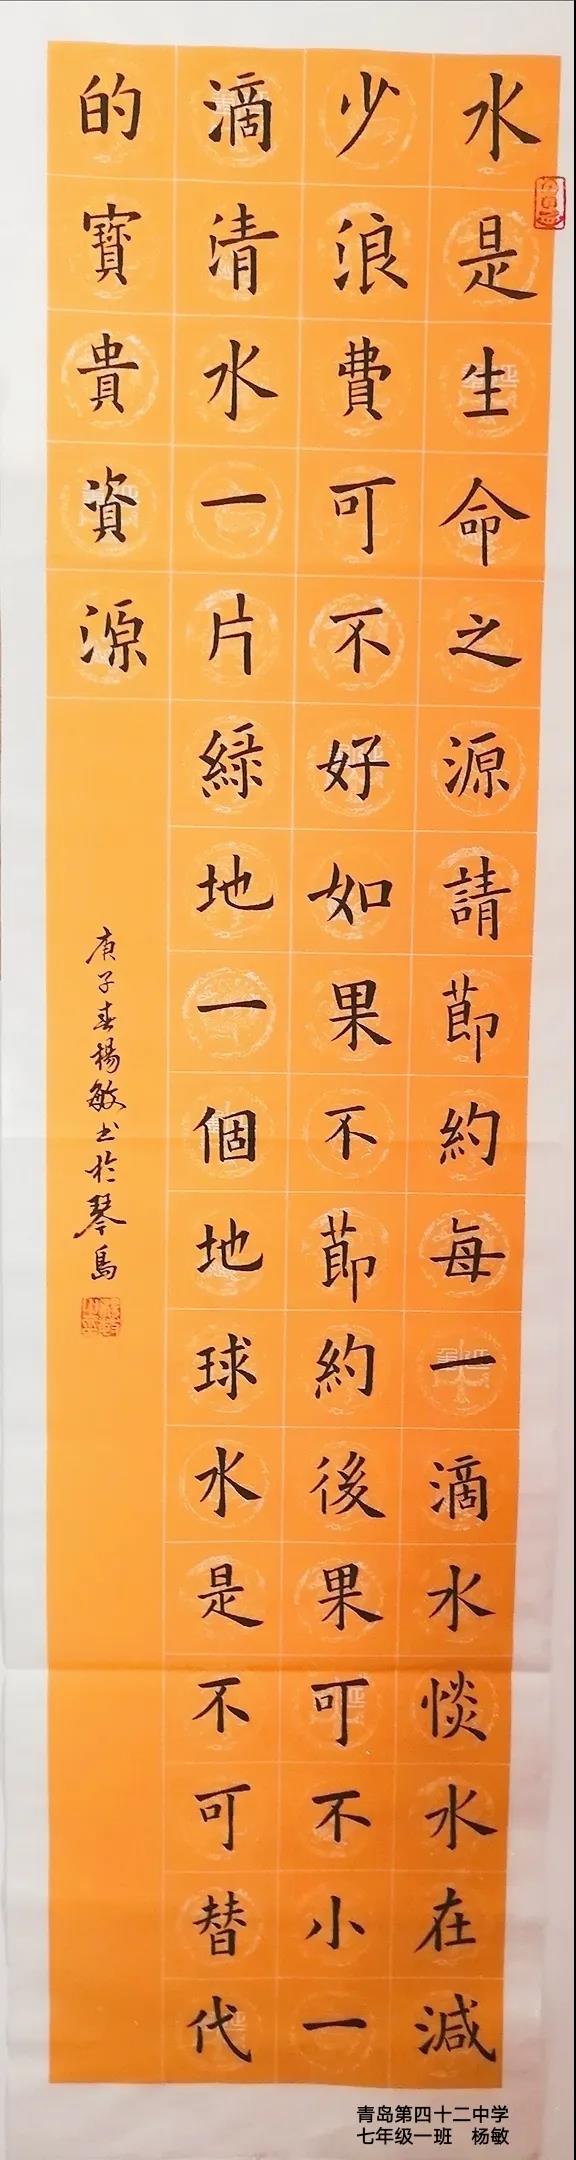 水是生命之源請莭約每一滴水惔水在減
少浪費可不好如果不莭約後果可不小一
滴清水一片綠地一個地球水是不可替代
的寶貴資源
庚子春楊敏书於琴島
青岛第四十二中学
七年级一班 杨敏